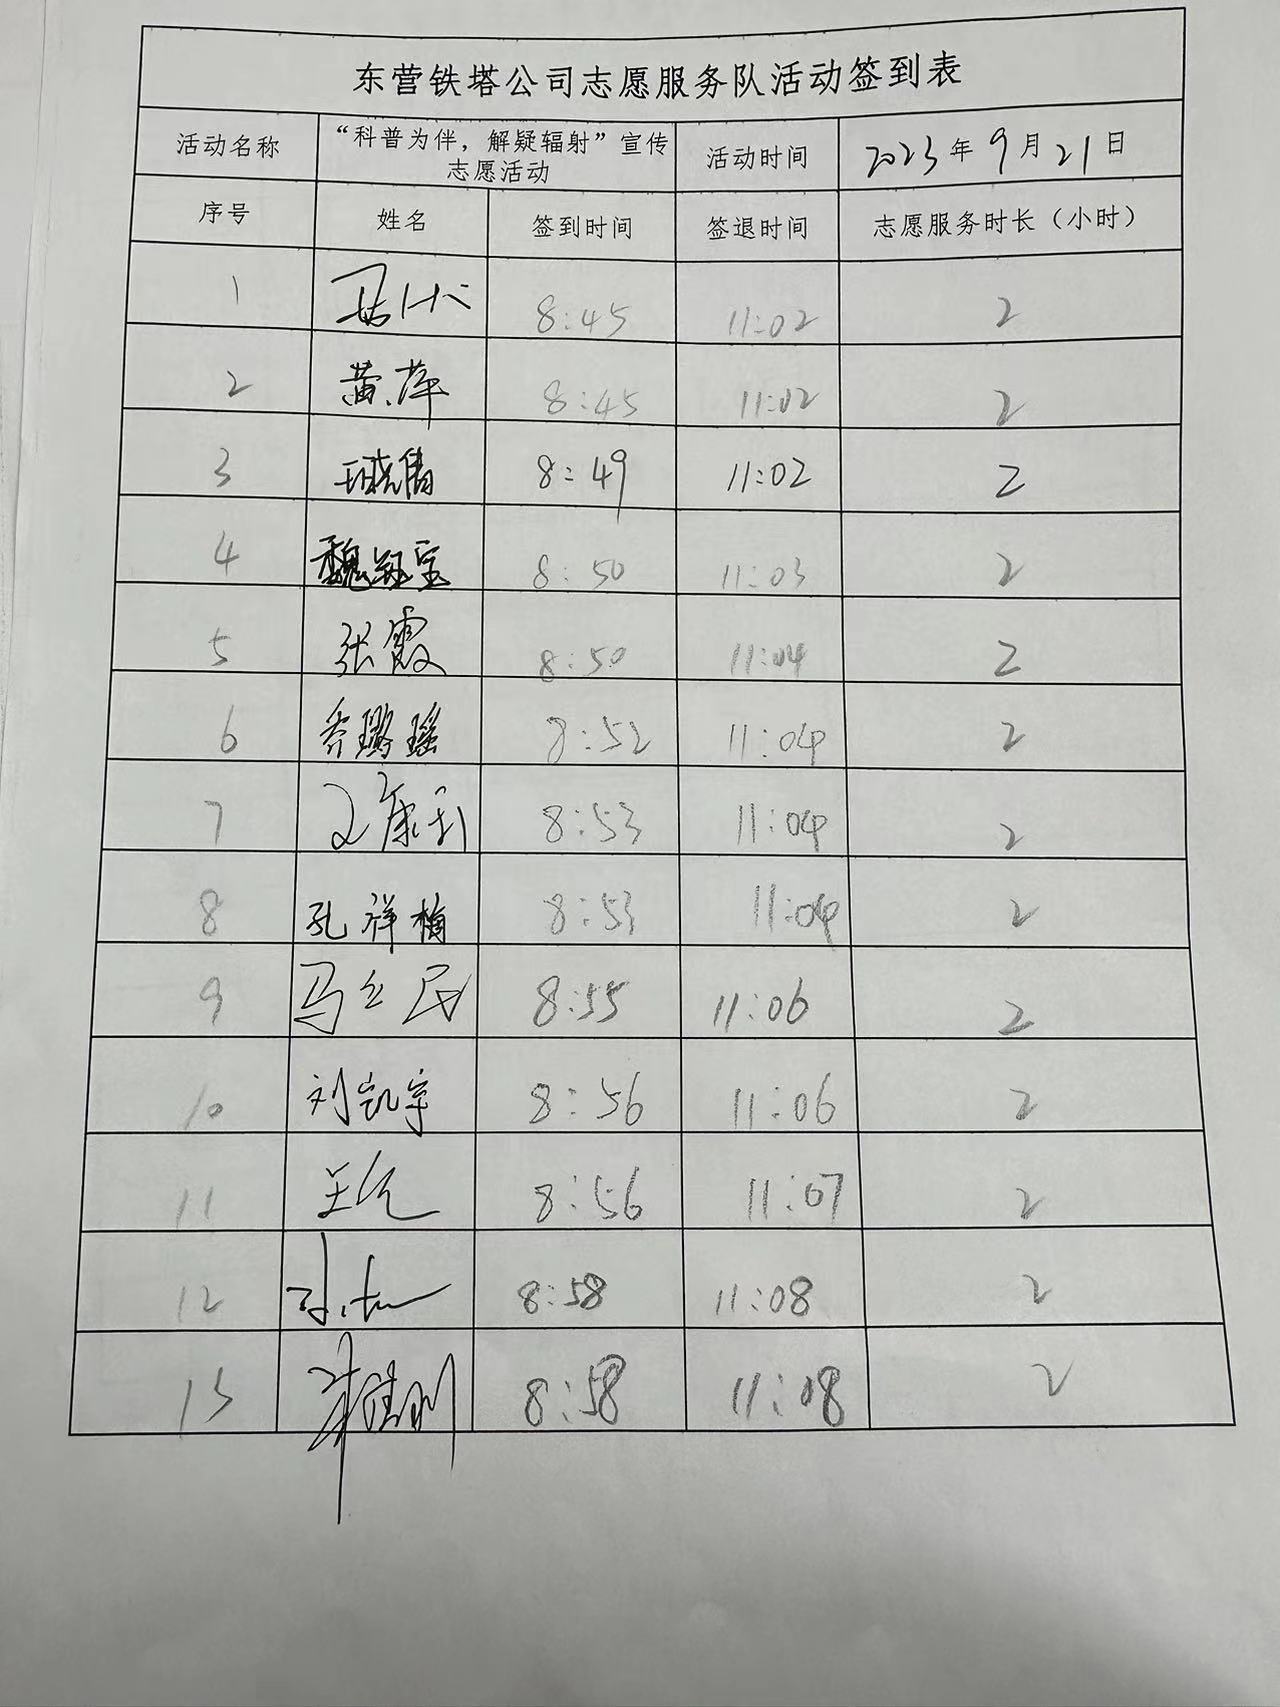 东营铁塔公司志愿服务队活动签到表
活动名称 “科普为伴，解疑辐射”宣传志愿活动 活动时间 2023年9月21日
序号 姓名 签到时间 签退时间 志愿服务时长（小时）
1 8:45 11:02 2
2 黄萍 8:45 11:02 2
3 8:49 11:02 2
4 魏钰宝 8:50 11:03 2
5 张霞 8:50 11:04 2
6 乔璐瑶 8:52 11:04 2
7 文康利 8:53 11:04 2
8 孔祥梅 8:53 11:04 2
9 马立民 8:55 11:06 2
10 刘凯宇 8:56 11:06 2
11 8:56 11:07 2
12 8:58 11:08 2
13 8:58 11:08 2